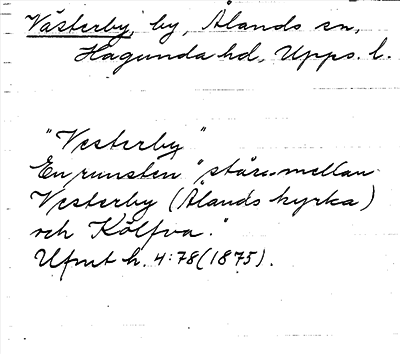 Västerby, by, Ålands sn,
Hagunda hd, Upps. l.
"Vesterby"
En runsten "står mellan
Vesterby (Ålands kyrka)
och Kölfva."
Ufmt h. 4:78 (1875).